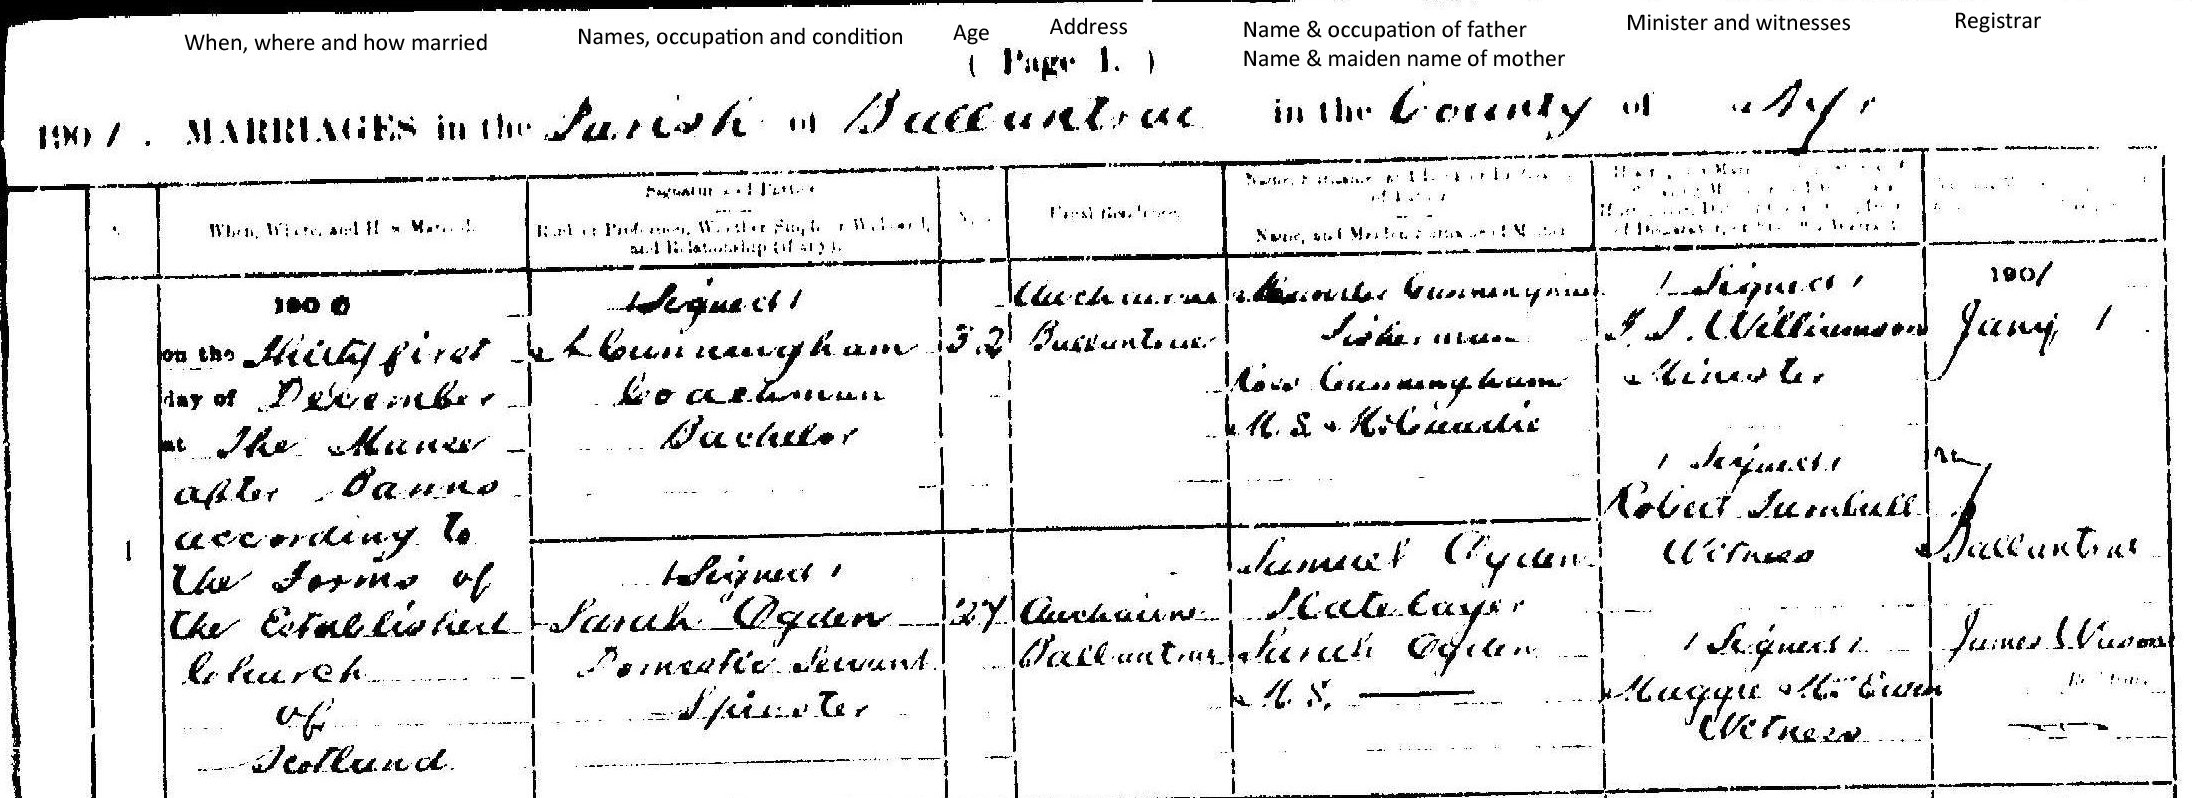 When, where and how married
Names, occupation and condition
Age
Address
Name & occupation of father
Name & maiden name of mother
Minister and witnesses
Registrar
( Page 1. )
1901. MARRIAGES in the Parish of Ballantrae in the County of Ayr
When, Where, and How Married.
Signature of Parties
Rank or Profession, Whether Single or Widowed,
and Relationship (if any).
Age
Usual Residence.
of Father
Name, and Maiden Surname of Mother
1
1900
on the Thirty first
day of December
at The Manse
after Banns
according to
the Forms of
the Established
Church
of
Scotland
(Signed)
A Cunningham
Coachman
Bachelor
32
Auchairne
Ballantrae
Cunningham
Fisherman
Cunningham
M.S.
(Signed)
Williamson
Minister
(Signed)
Robert Turnbull
Witness
1901
Jany 1
Ballantrae
(Signed)
Sarah Ogden
Domestic Servant
Spinster
27
Auchairne
Ballantrae
Samuel Ogden
Platelayer
Sarah Ogden
M.S. ——
(Signed)
Maggie McEwen
Witness
James
Registrar